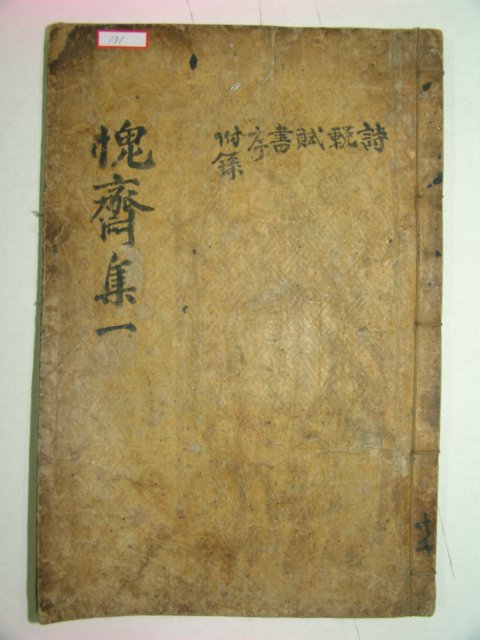 131
詩輓賦書序附錄
愧齋集一